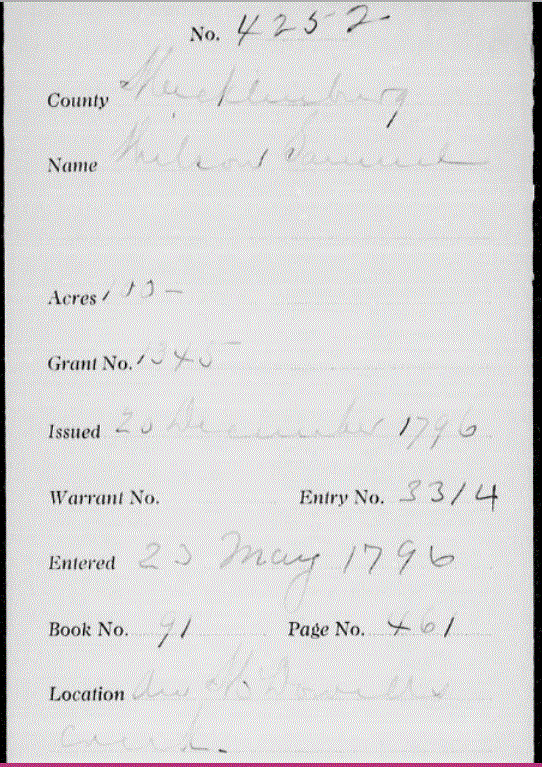 No. 4252
County Mecklenburg
Name Wilson Samuel
Acres 100 -
Grant No. 1345
Issued 20 December 1796
Warrant No. Entry No. 3314
Entered 23 May 1796
Book No. 91 Page No. 461
Location McDowells
creek.